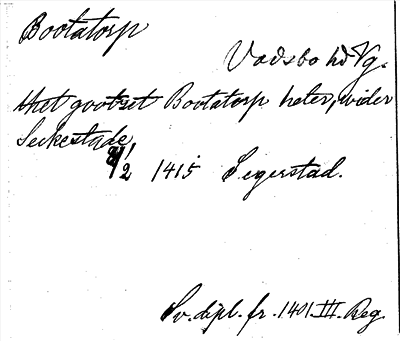 Bootatorp
Vadsbo hd Vg.
thet gootzet Bootatorp heter, wider
Seckestade
8/2 1415 Segerstad.
Sv. dipl. fr. 1401. III. Reg.